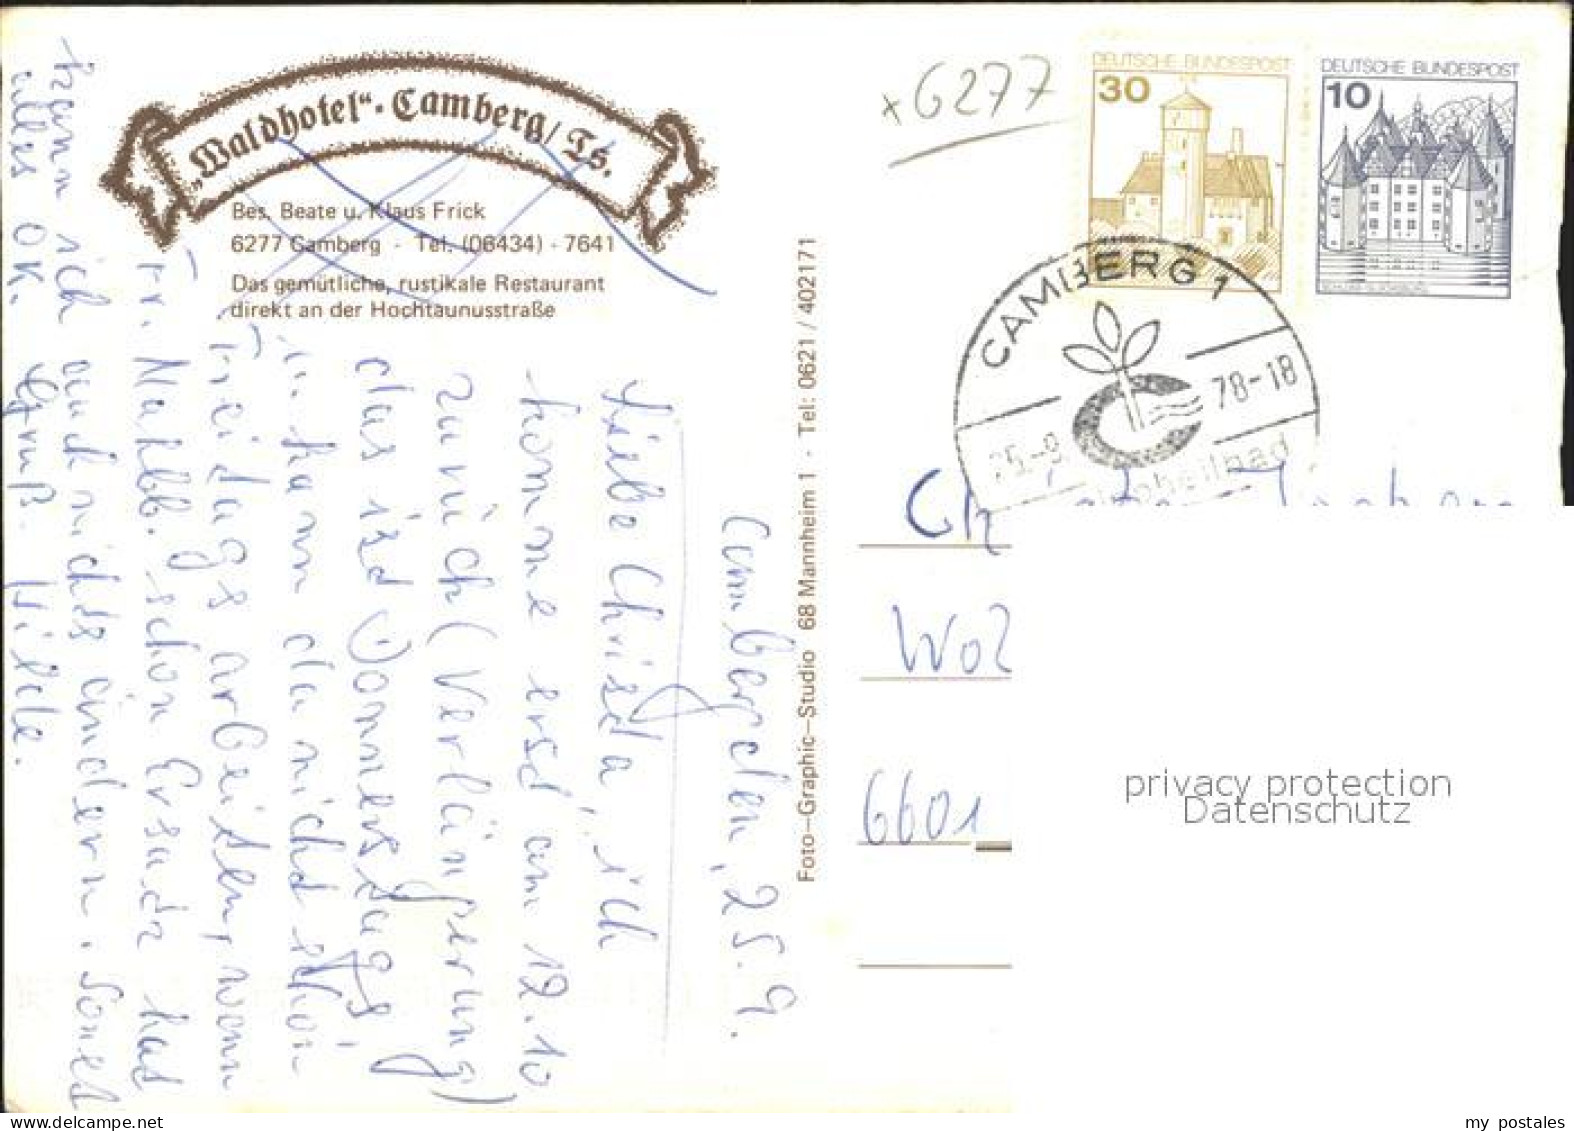 „Waldhotel“ · Camberg/Ts.
Bes. Beate u. Klaus Frick
6277 Camberg - Tel. (06434) - 7641
Das gemütliche, rustikale Restaurant
direkt an der Hochtaunusstraße
Cambergden, 25.9.
Liebe Christa, ich
komme erst am 12.10
zurück (Verlängerung)
das ist Donnerstags,
ich kann da nicht schon
Freitags arbeiten, wenn
Fr. Mahlb. schon Ersatz hat
kann ich auch nichts ändern. Sonst
alles OK. Gruß. Hilde.
Foto–Graphic–Studio 68 Mannheim 1 · Tel: 0621 / 402171
x 6277
DEUTSCHE BUNDESPOST
30
DEUTSCHE BUNDESPOST
10
CAMBERG 1
25.-9 78-18
6601
privacy protection
Datenschutz
my postales